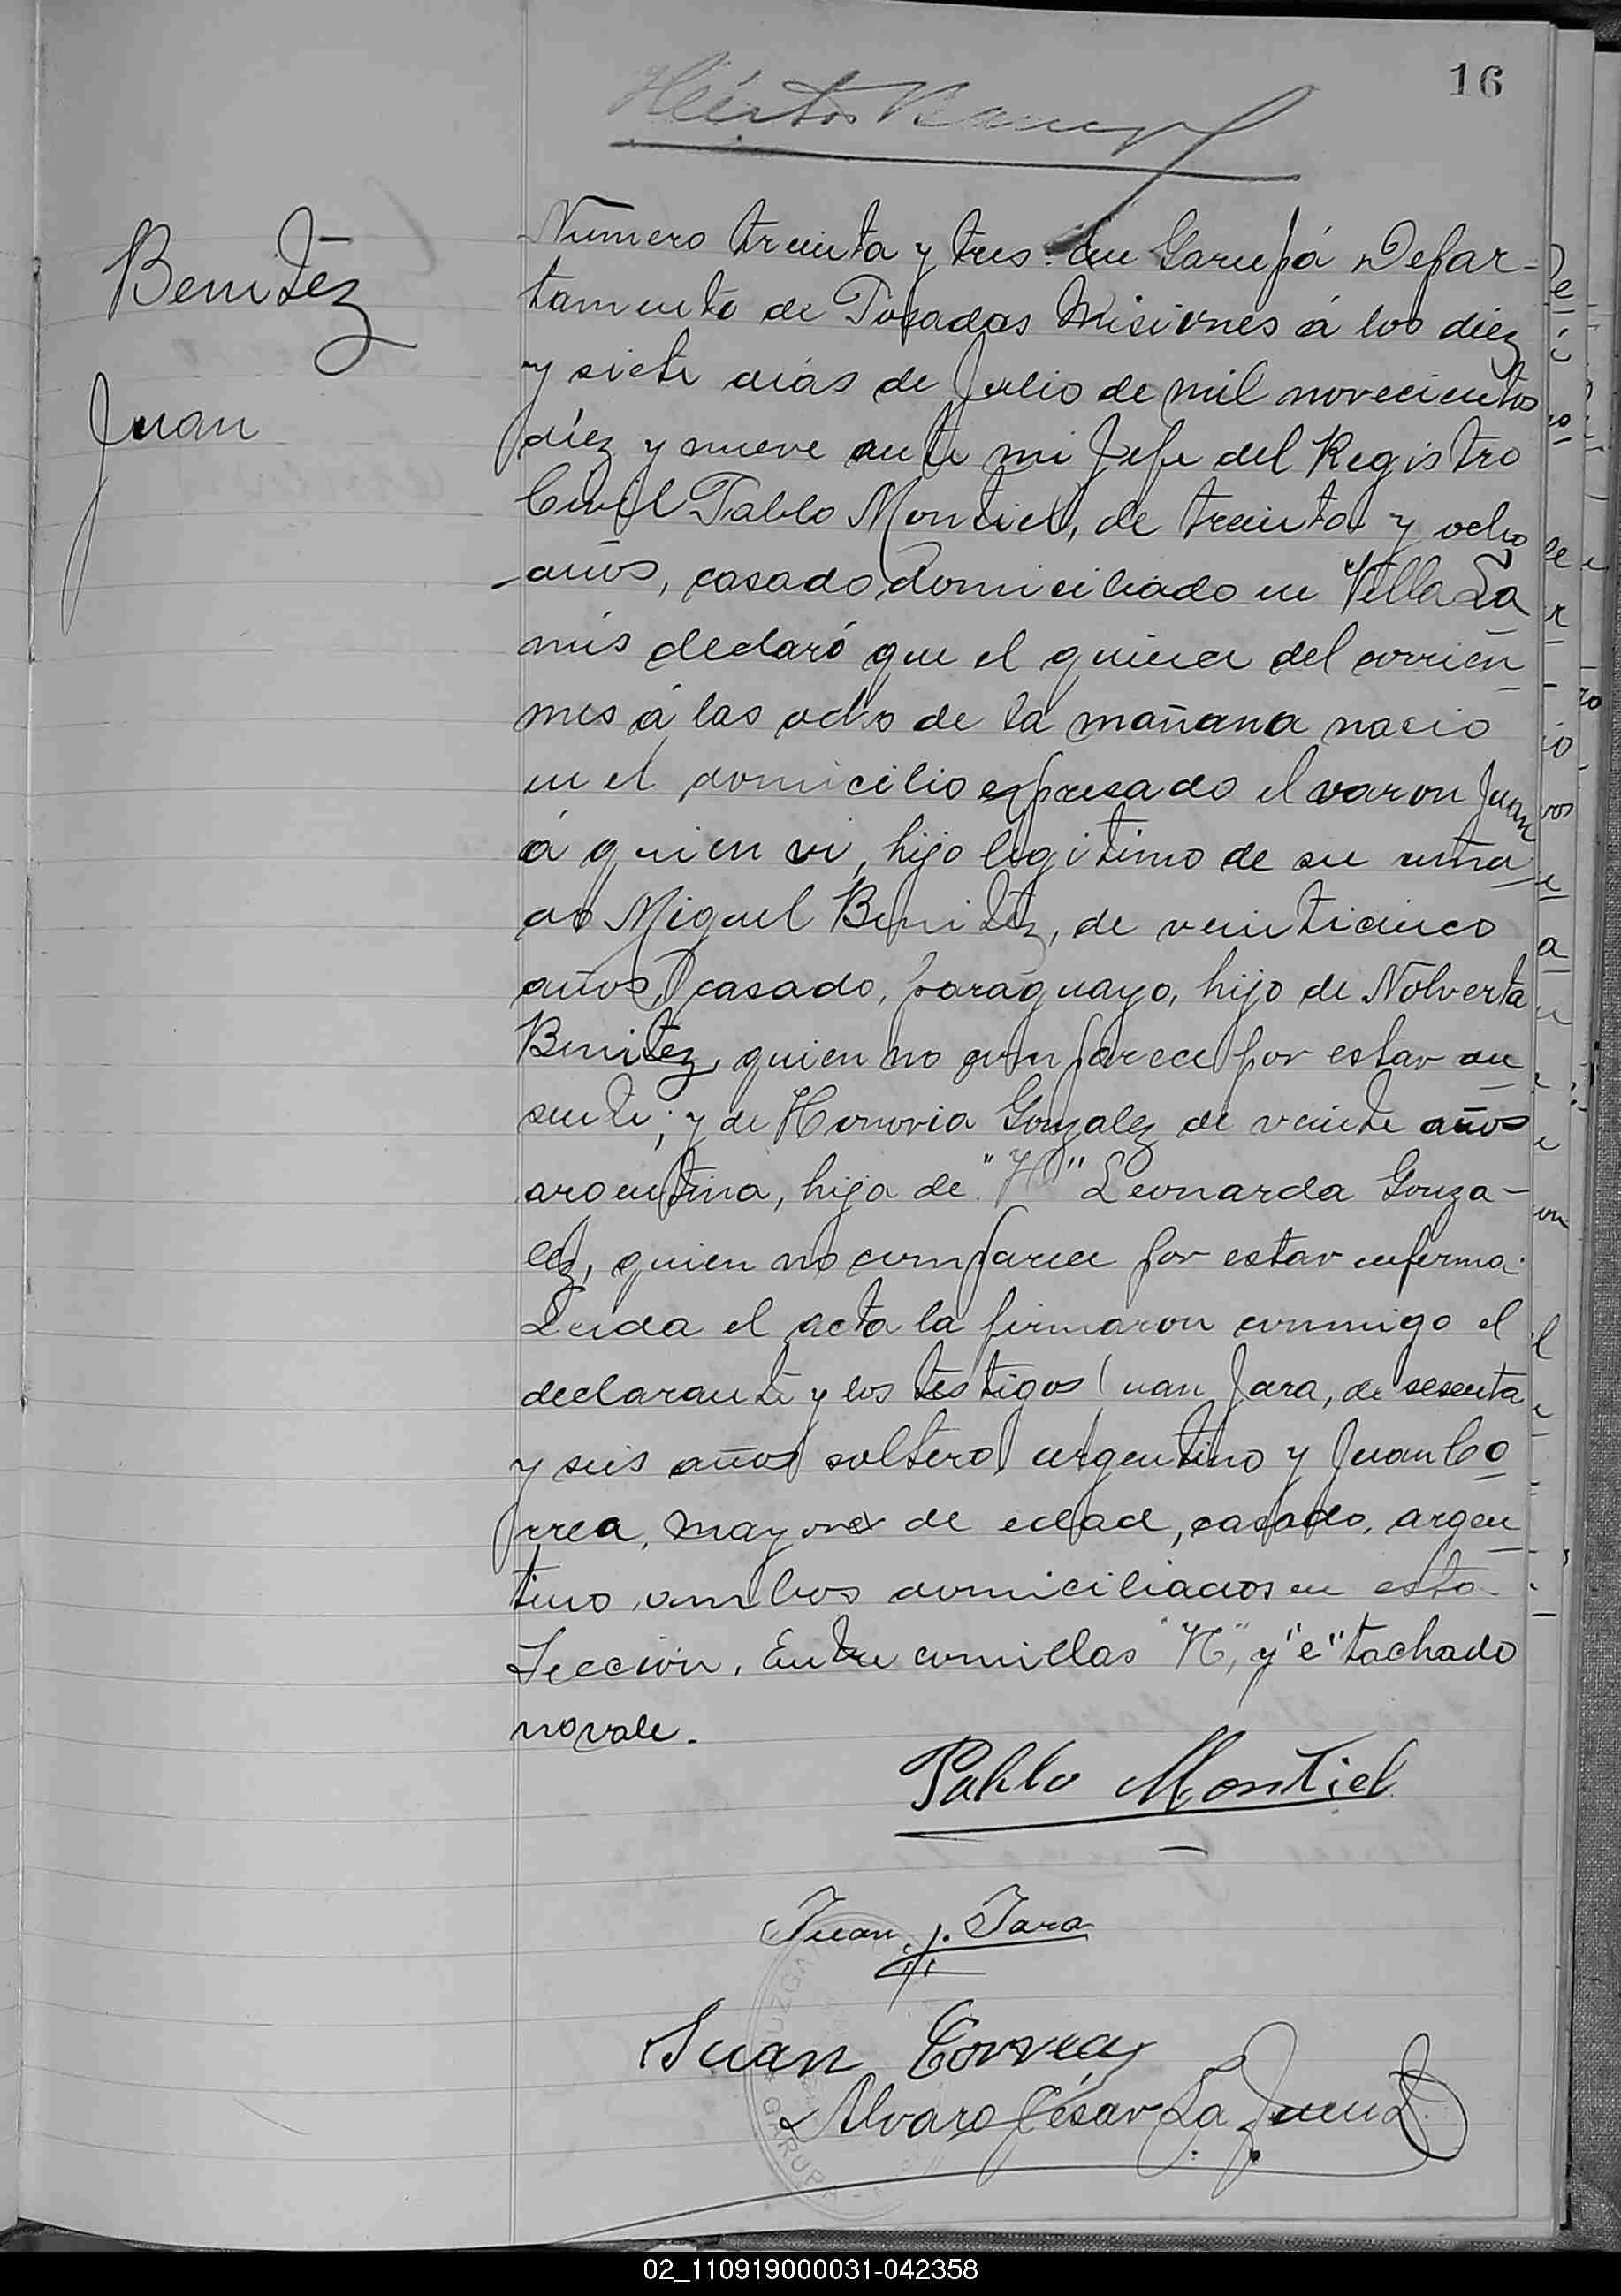 16
Benitez
Juan
Número treinta y tres: En Garupá Depar-
tamento de Posadas Misiones á los diez
y siete dias de Julio de mil novecientos
diez y nueve ante mi Jefe del Registro
Civil Pablo Montiel, de treinta y ocho
años, casado, domiciliado en Villa La
nús declaró que el quince del corrien
mes á las ocho de la mañana nació
en el domicilio espresado el varon Juan
á quien vi, hijo legitimo de su
do Miguel Benitez, de veinticinco
años, casado, paraguayo, hijo de Nolverta
Benitez, quien no comparece por estar au
sente; y de Honoria Gonzalez de veinte años
argentina, hija de "H" Leonarda Gonza-
lez, quien no comparece por estar enferma.
Leida el acta la firmaron conmigo el
declarante y los testigos Juan Jara, de sesenta
y seis años soltero, argentino y Juan Co
rrea, mayor de edad, casado, argen
tino ambos domiciliados en esta
Sección. Entre comillas "H", y "e" tachado
no vale.
Pablo Montiel
Juan J. Jara
Juan Correa
Alvaro César La
GARUPA
02_110919000031-042358